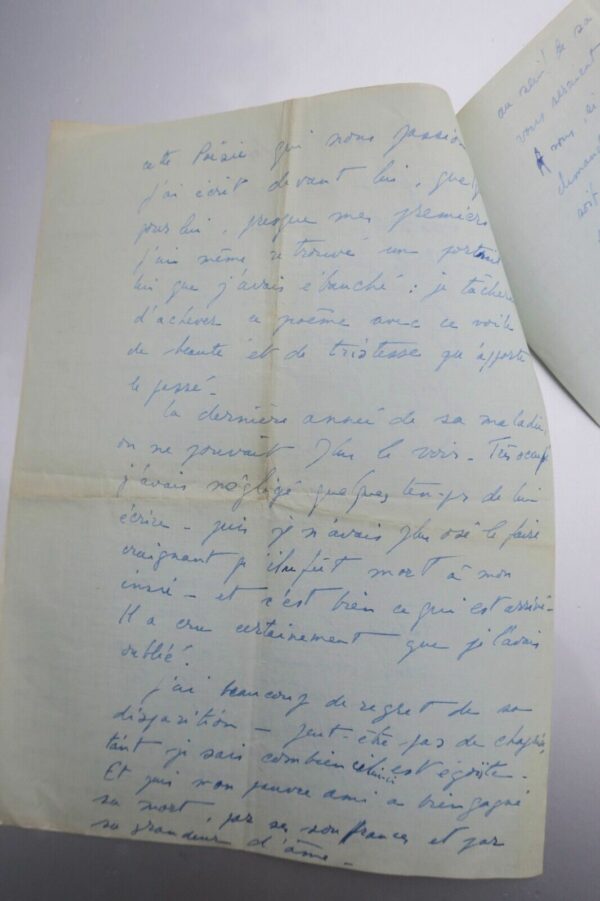 cette Poésie qui nous passion
j'ai écrit devant lui, quelq
pour lui, presque mes premiers
j'ai même retrouvé un portrait
lui que j'avais ébauché : je tâcherai
d'achever ce poème avec ce voile
de beauté et de tristesse qu'apporte
le passé.
La dernière année de sa maladie,
on ne pouvait plus le voir. Très occupé
j'avais négligé quelques temps de lui
écrire - puis je n'avais plus osé le faire
craignant qu'il fût mort à mon
insu - et c'est bien ce qui est arrivé -
Il a cru certainement que je l'avais
oublié.
J'ai beaucoup de regret de sa
disparition - peut-être pas de chagrin,
tant je sais combien celui-ci est égoïste.
Et puis mon pauvre ami a bien gagné
sa mort, par ses souffrances et par
sa grandeur d'âme -
au
vous
A nous, si
soit